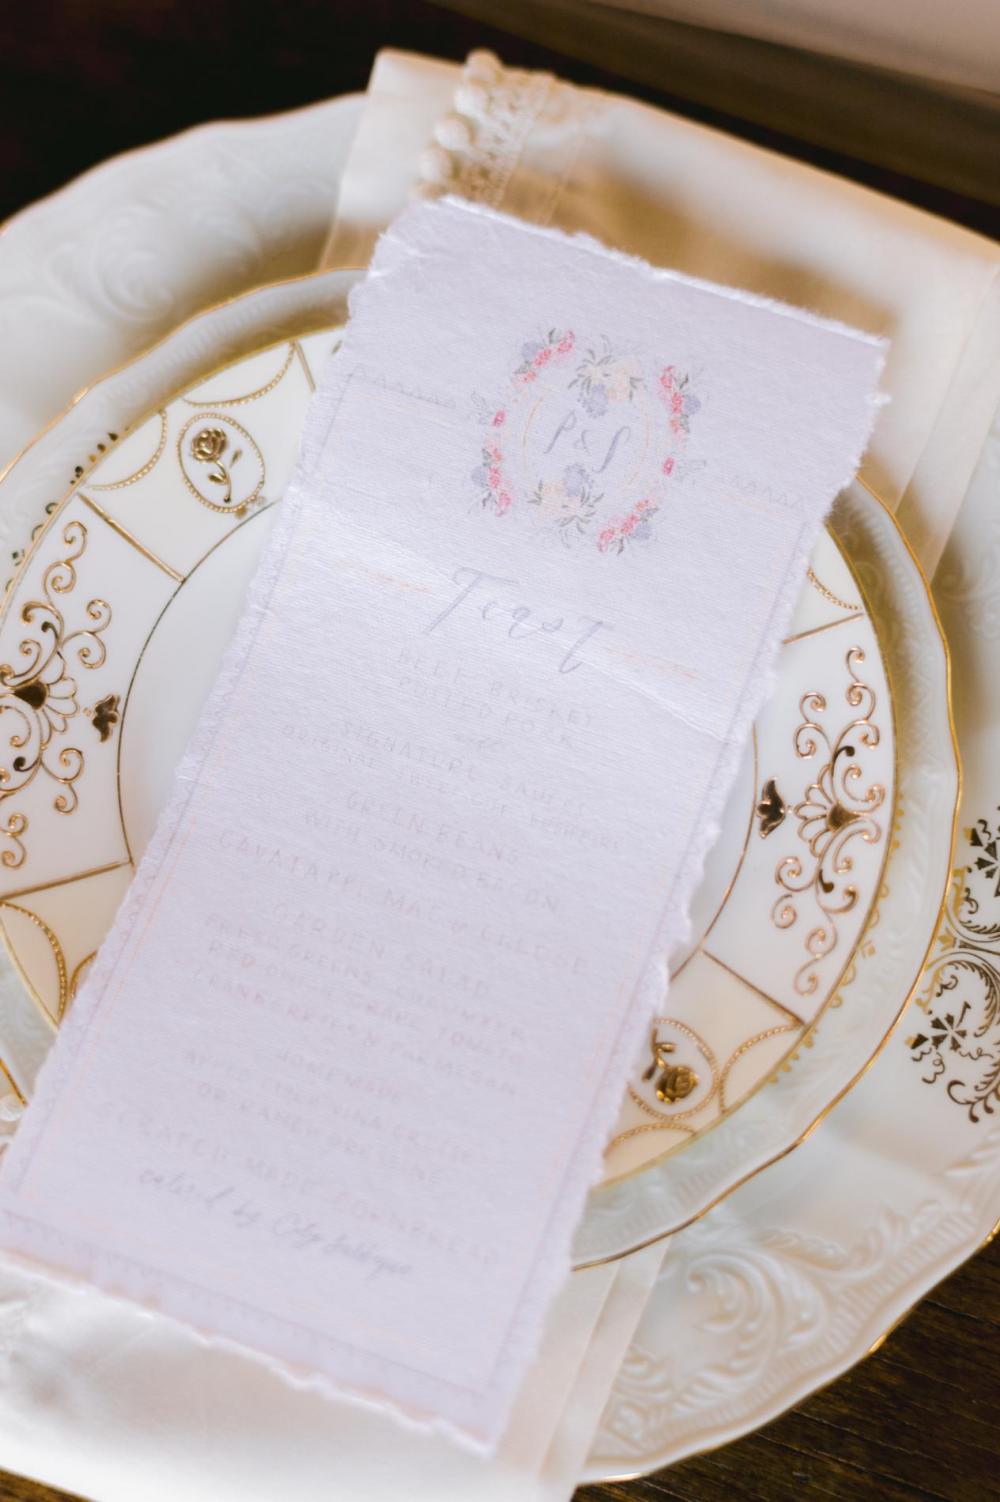 P & S
Feast
BEEF BRISKET
PULLED PORK
SIGNATURE SAUCES
ORIGINAL
GREEN BEANS
WITH SMOKED BACON
CAVATAPPI MAC & CHEESE
GARDEN SALAD
FRESH GREENS, CUCUMBER
RED ONION, GRAPE TOMATO
CRANBERRIES & PARMESAN
HOMEMADE
APPLE CIDER VINAIGRETTE
OR RANCH DRESSING
SCRATCH MADE CORNBREAD
catered by City Barbeque